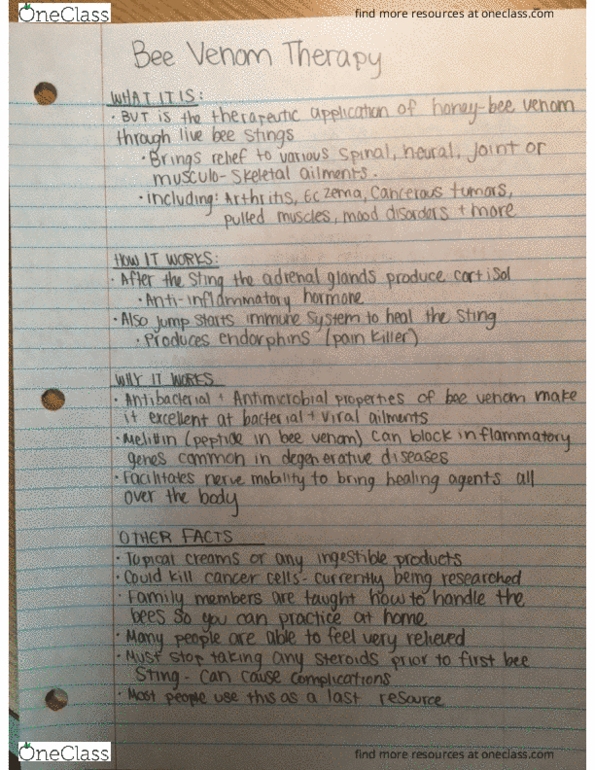 OneClass
find more resources at oneclass.com
Bee Venom Therapy
WHAT IT IS:
· BUT is the therapeutic application of honey-bee venom
through live bee stings
· Brings relief to various spinal, neural, joint or
musculo-skeletal ailments.
· Including: Arthritis, Eczema, Cancerous tumors,
pulled muscles, mood disorders + more
HOW IT WORKS:
· After the sting the adrenal glands produce cortisol
· Anti-inflammatory hormone
· Also jump starts immune system to heal the sting
· Produces endorphins (pain killer)
WHY IT WORKS
· Antibacterial + Antimicrobial properties of bee venom make
it excellent at bacterial + viral ailments
· Melittin (peptide in bee venom) can block inflammatory
genes common in degenerative diseases
· Facilitates nerve mobility to bring healing agents all
over the body
OTHER FACTS
· Topical creams or any ingestible products
· Could kill cancer cells - currently being researched
· Family members are taught how to handle the
bees so you can practice at home
· Many people are able to feel very relieved
· Must stop taking any steroids prior to first bee
sting - can cause complications
· Most people use this as a last resource
OneClass
find more resources at oneclass.com